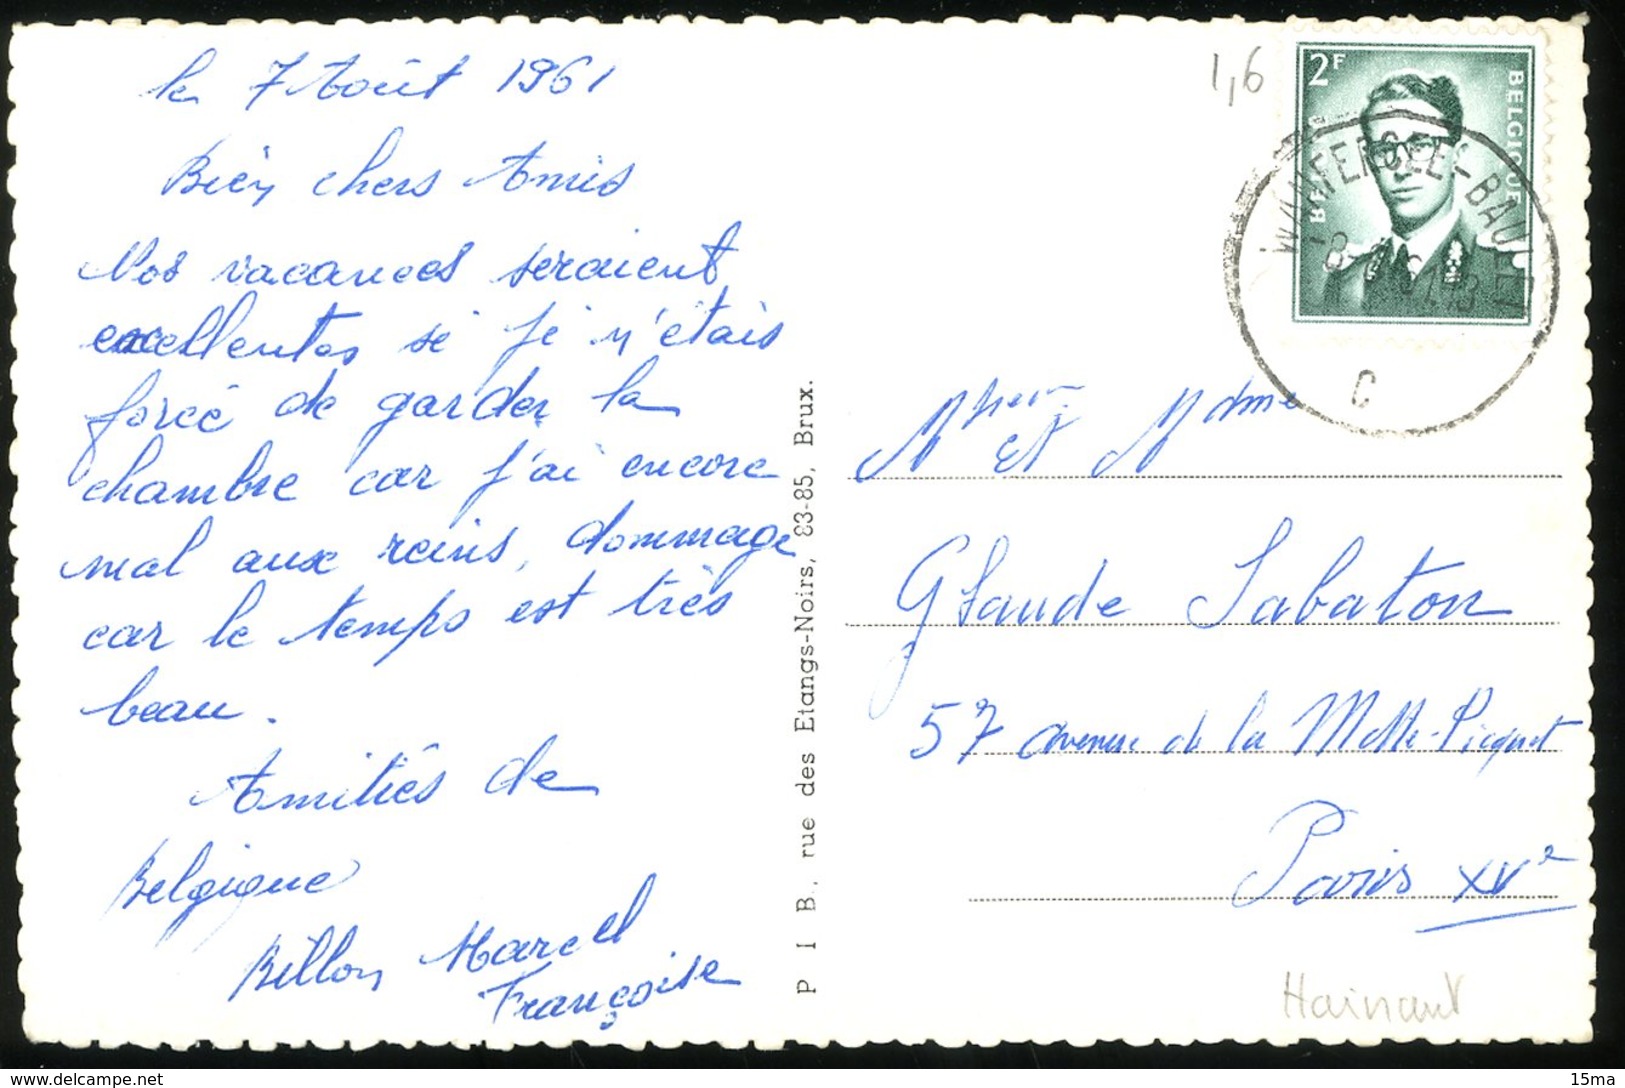 le 7 Août 1961
Bien chers Amis
Nos vacances seraient
excellentes si je n'étais
forcé de garder la
chambre car j'ai encore
mal aux reins, dommage
car le temps est très
beau.
Amitiés de
Belgique
Billon Marcel
Françoise
P I B, rue des Etangs-Noirs, 83-85, Brux.
1,6
2F
BELGIQUE
WANFERCEE-BAULET
C
et Mdme
Glaude Sabaton
57 avenue de la Motte-Picquet
Paris XVe
Hainaut
15ma